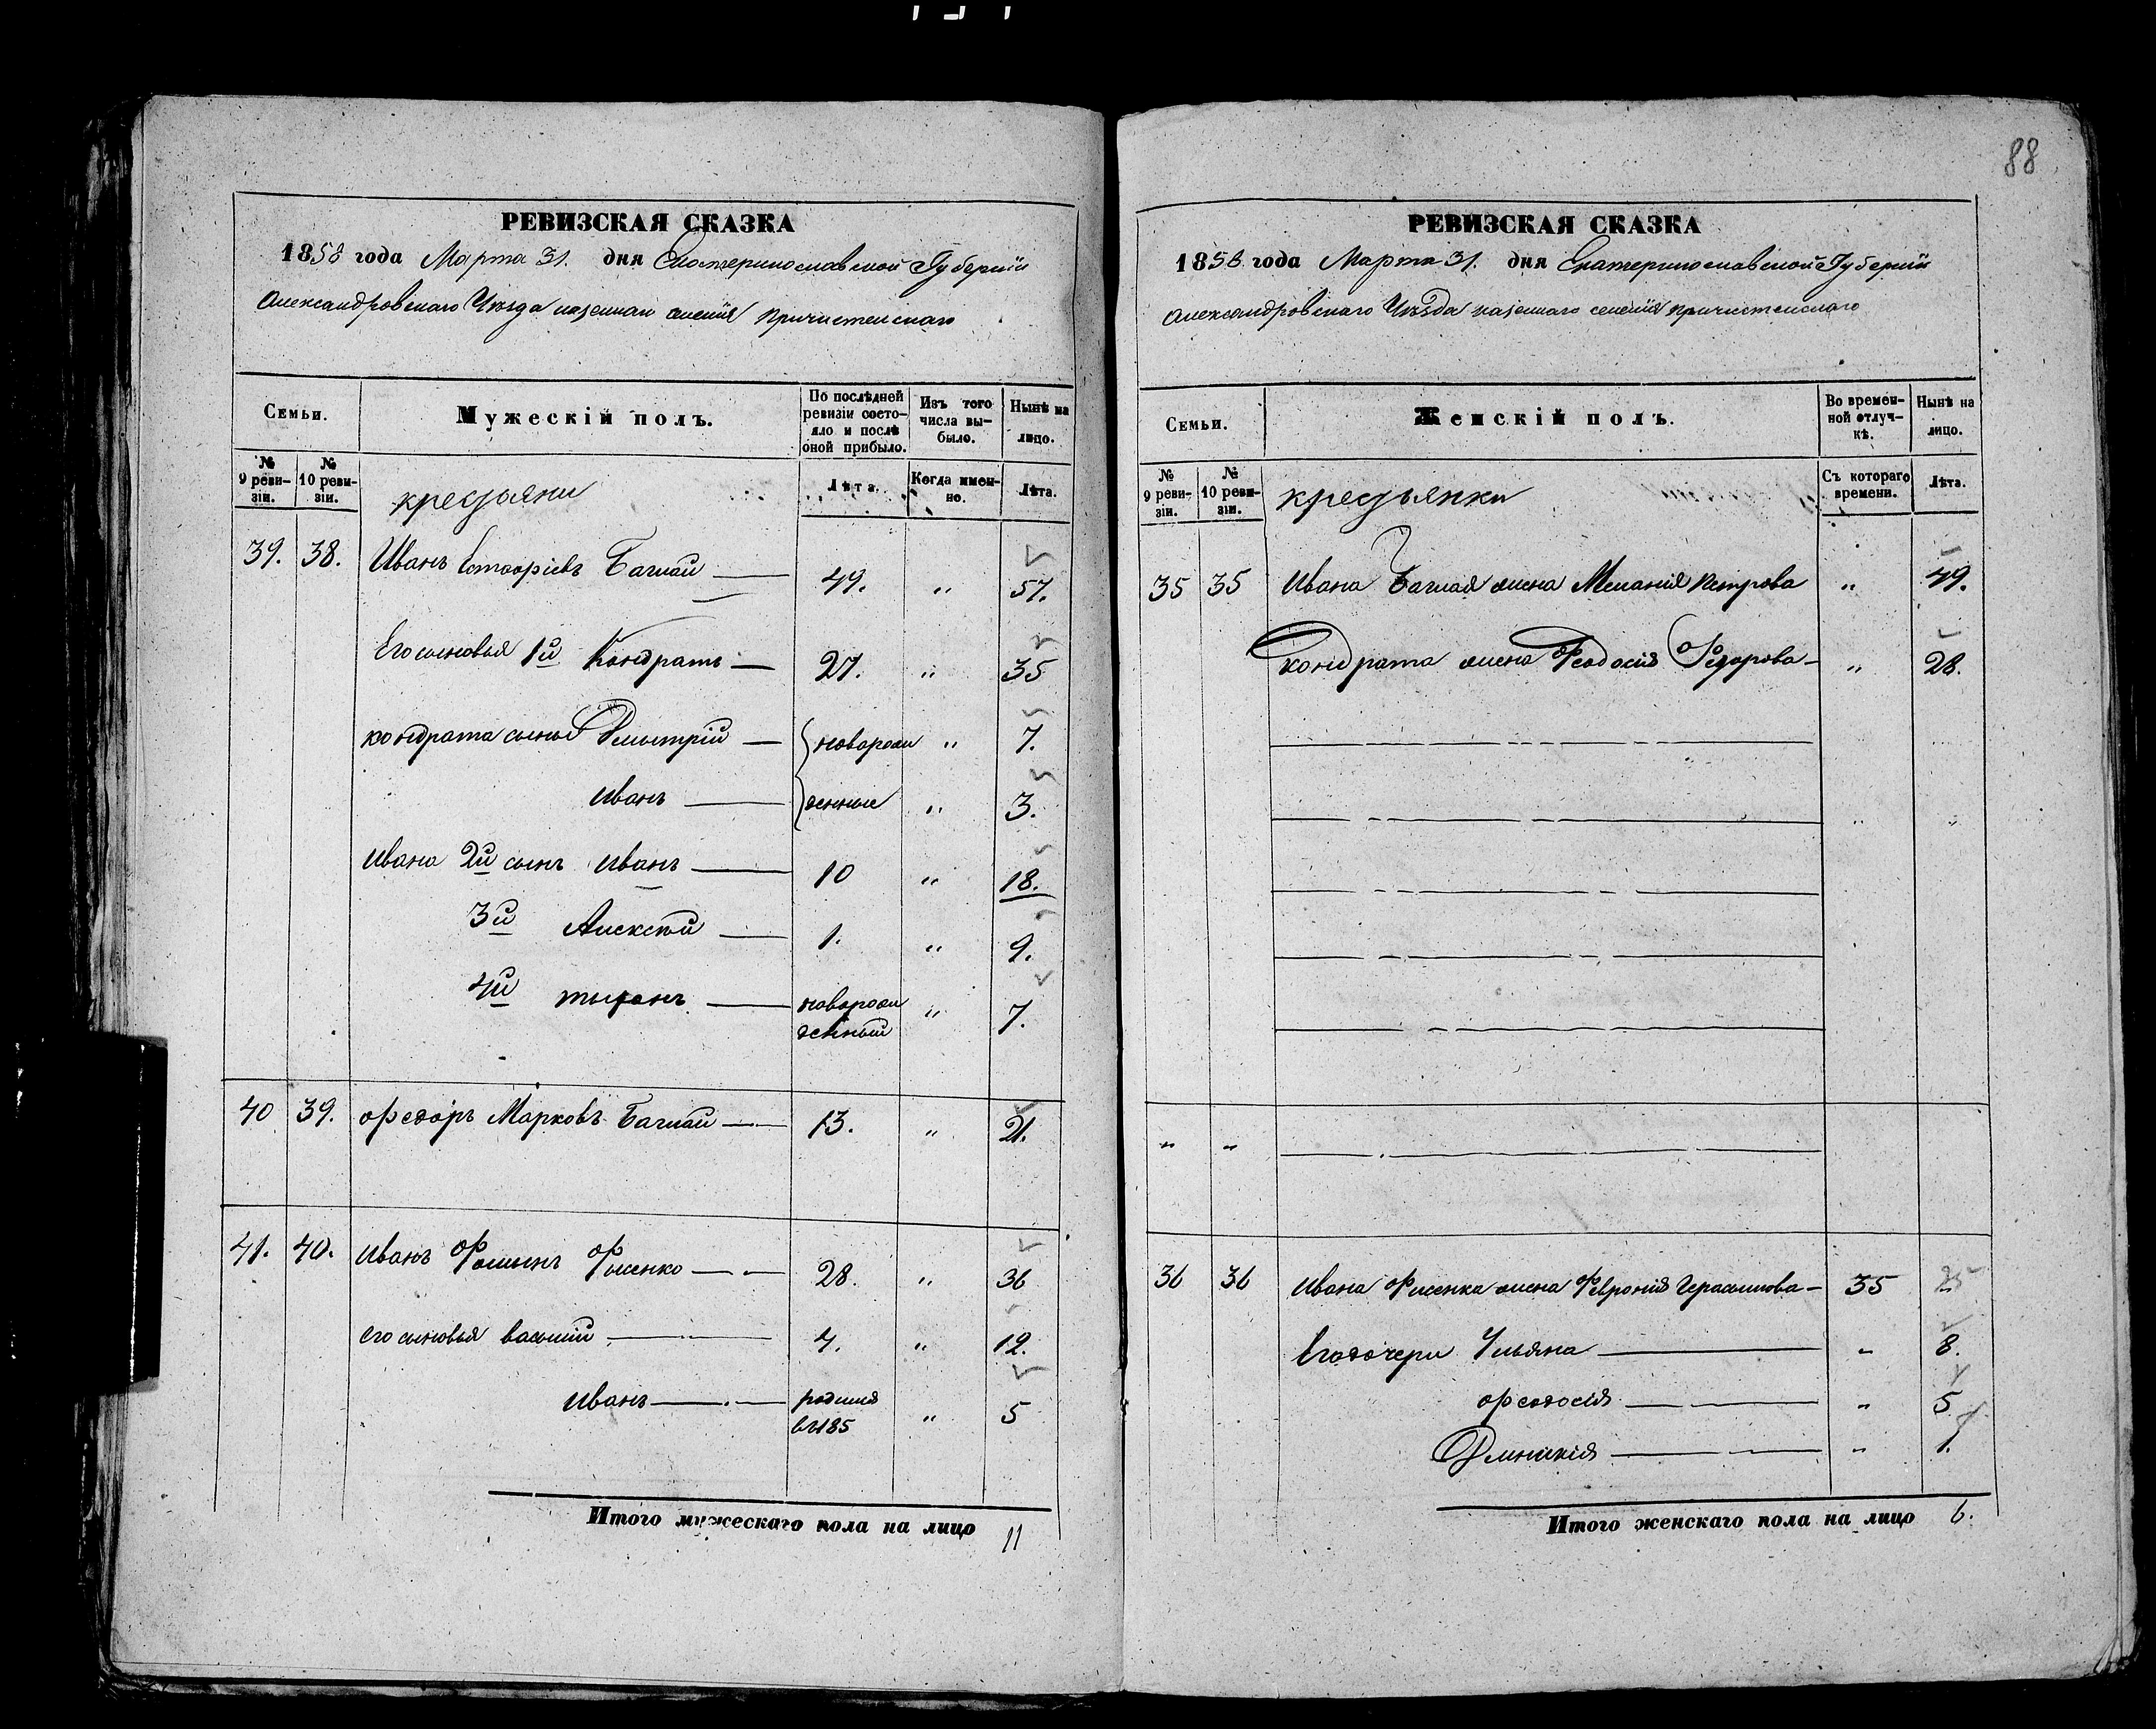 88
РЕВИЗСКАЯ СКАЗКА
1858 года Марта 31. дня Екатеринославской Губерніи
Александровскаго Уѣзда казеннаго селенія Причистенскаго
Семьи.
Мужескій полъ.
По послѣдней ревизіи состояло и послѣ оной прибыло.
Изъ того числа выбыло.
Нынѣ на лицо.
№ 9 ревизіи.
№ 10 ревизіи.
крестьяни
Лѣта.
Когда именно.
Лѣта.
39. 38. Иванъ Багнай — 49. „ 57.
Его сыновья 1й Кондратъ — 27. „ 35
кондрата сыны Дмытрій — новорож „ 7.
Иванъ — денные „ 3.
Ивана 2й сынъ Иванъ — 10 „ 18.
3й Алексѣй — 1. „ 9.
4й — новорож „ 7.
денный
40 39. Федоръ Марковъ Багнай — 13. „ 21.
41. 40. Иванъ Фисенко — 28. „ 36
его сыновья василій — 4. „ 12.
Иванъ — родился „ 5
въ 185
Итого мужескаго пола на лицо 11
РЕВИЗСКАЯ СКАЗКА
1858 года Марта 31. дня Екатеринославской Губерніи
Александровскаго Уѣзда казеннаго селенія Причистенскаго
Семьи.
Женскій полъ.
Во временной отлучкѣ.
Нынѣ на лицо.
№ 9 ревизіи.
№ 10 ревизіи.
крестьянки
Съ котораго времени.
Лѣта.
35 35 Ивана Багная жена Меланія Петрова „ 49.
Кондрата жена Феодосія Федорова — „ 28.
„ „
36 36 Ивана Фисенка жена Феvронія Герасимова — 35 25
Его дочери Ульяна — „ 8.
Феодосія — „ 5
— „ 1.
Итого женскаго пола на лицо 6.